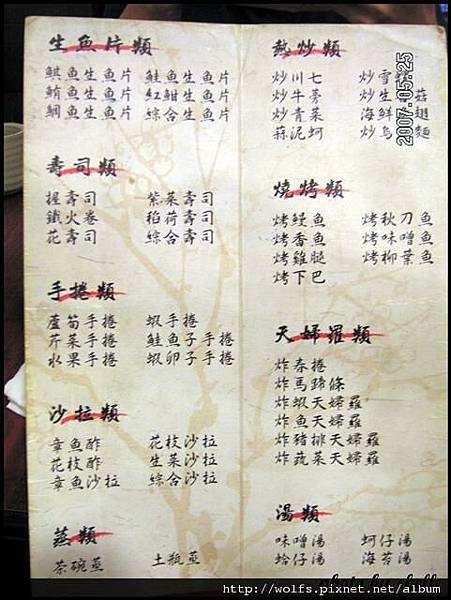 生魚片類
鯕魚生魚片 鮭魚生魚片
鮪魚生魚片 紅魽生魚片
鯛魚生魚片 綜合生魚片
壽司類
握壽司 紫菜壽司
鐵火卷 稻荷壽司
花壽司 綜合壽司
手捲類
蘆筍手捲 蝦手捲
芹菜手捲 鮭魚子手捲
水果手捲 蝦卵子手捲
沙拉類
章魚酢 花枝沙拉
花枝酢 生菜沙拉
章魚沙拉 綜合沙拉
蒸類
茶碗蒸 土瓶蒸
熱炒類
炒川七 炒雪
炒牛蒡 炒生 菇
炒青菜 海鮮
蒜泥蚵 炒烏 麵
燒烤類
烤鰻魚 烤秋刀魚
烤香魚 烤味噌魚
烤雞腿 烤柳葉魚
烤下巴
天婦羅類
炸春捲
炸馬蹄條
炸蝦天婦羅
炸魚天婦羅
炸豬排天婦羅
炸蔬菜天婦羅
湯類
味噌湯 蚵仔湯
蛤仔湯 海苔湯
2007.05.25
http://wolfs.pixnet.net/album